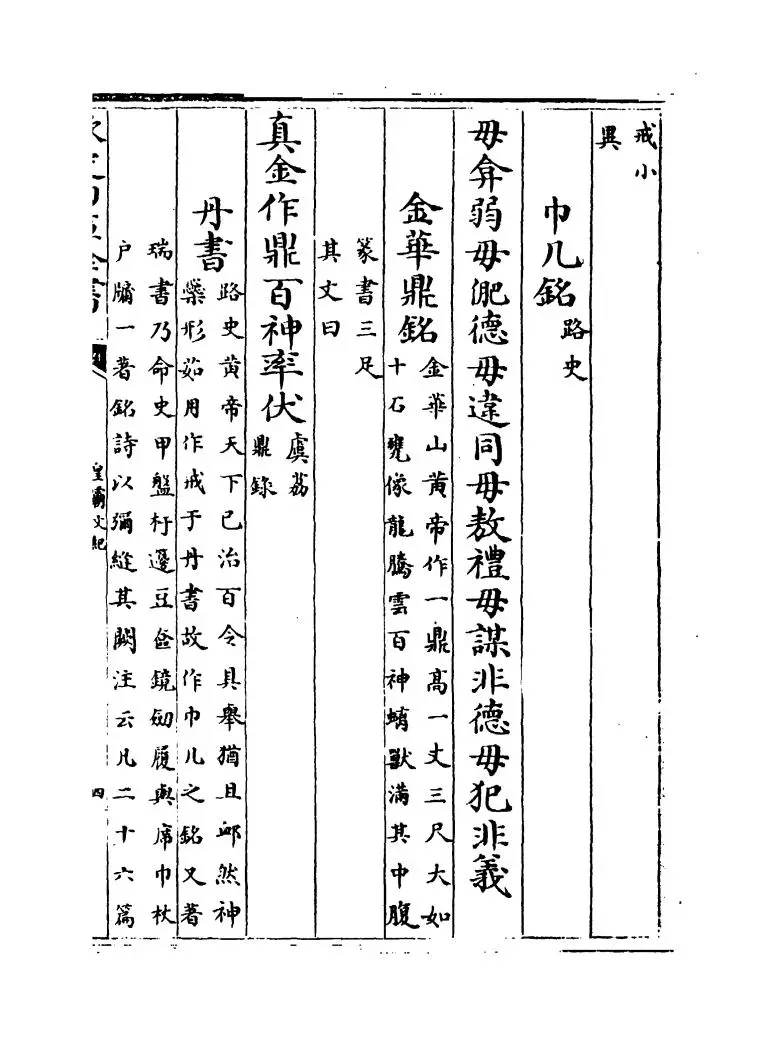 戒小
異
巾几銘路史
毋弇弱毋俷德毋違同毋敖禮毋謀非德毋犯非義
金華鼎銘金華山黄帝作一鼎髙一丈三尺大如
十石甕像龍騰雲百神螭獸滿其中腹
篆書三足
其文曰
真金作鼎百神率伏虞荔
鼎錄
丹書路史黄帝天下已治百令具舉猶且䘏然神
藥形茹用作戒于丹書故作巾几之銘又著
瑞書乃命史甲盤杅邊豆奩鏡劒履輿席巾杖
户牖一著銘詩以彌縫其闕注云凡二十六篇
皇霸文紀
四